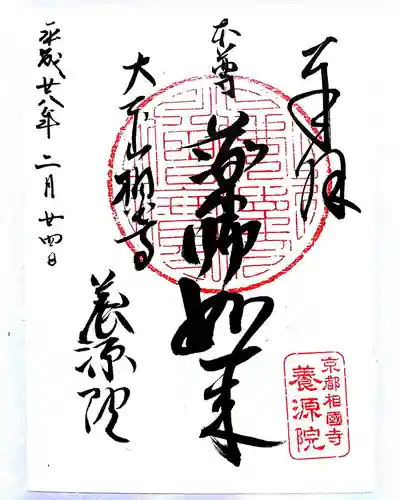 奉拝
本尊
薬師如来
大本山相国寺
養源院
平成廿八年二月廿四日
京都相國寺
養源院